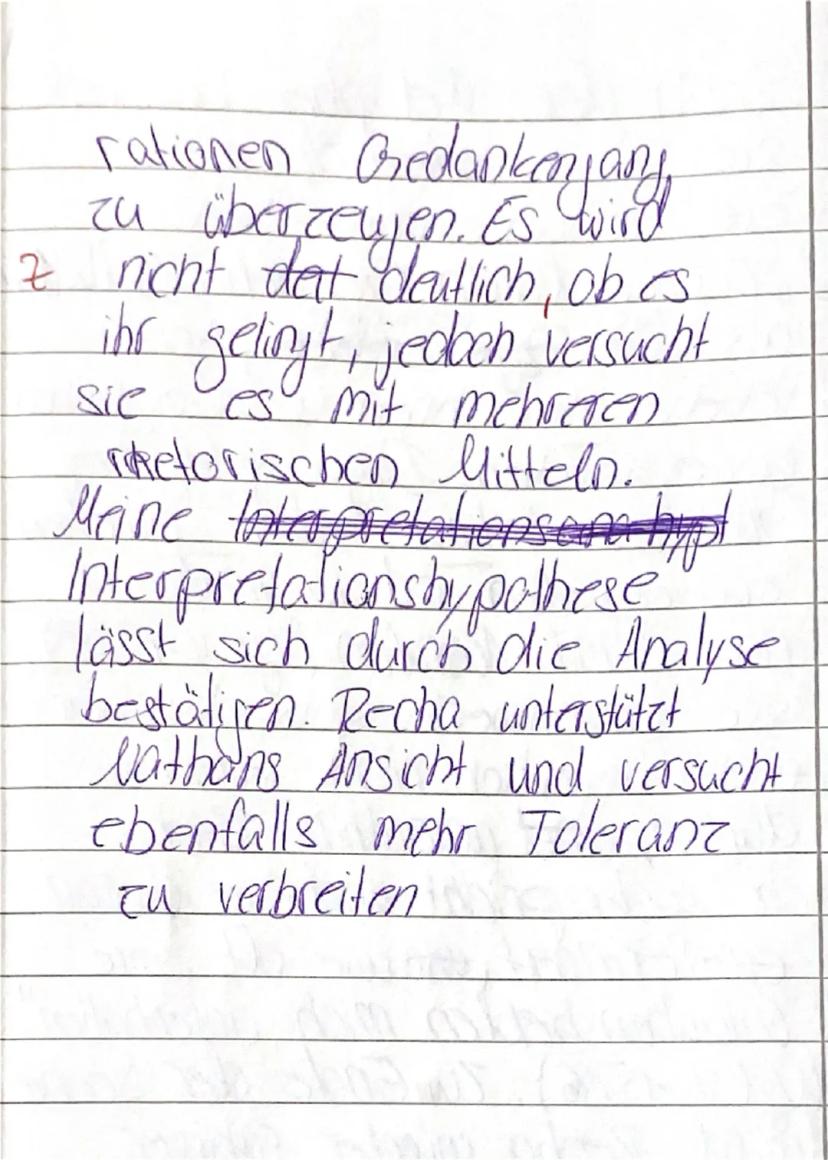 rationen Gedankengang
zu überzeugen. Es wird
Z nicht dat deutlich, ob es
ihr gelingt, jedoch versucht
sie es mit mehreren
rhetorischen Mitteln.
Meine
Interpretationshypothese
lässt sich durch die Analyse
bestätigen. Recha unterstützt
Nathans Ansicht und versucht
ebenfalls mehr Toleranz
zu verbreiten